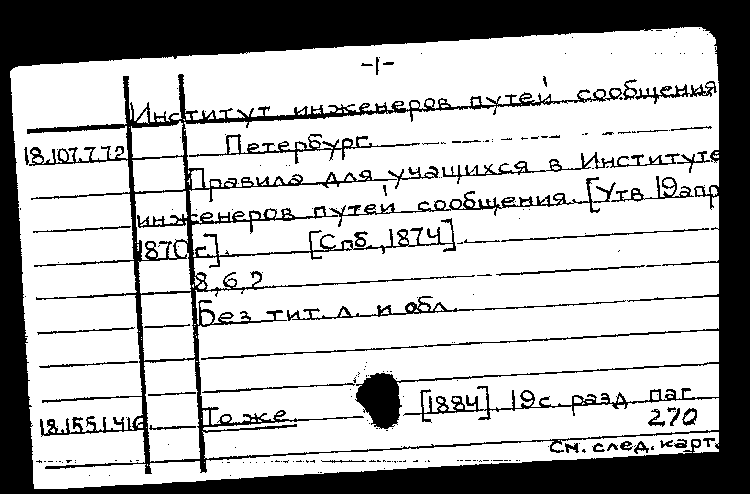 -1-
Институт инженеров путей сообщения
18.107.7.72 Петербург.
Правила для учащихся в Институте
инженеров путей сообщения. [Утв 19 апр
1870 г.]. [Спб, 1874].
8, 6, 2
Без тит. л. и обл.
18.155.1.416 То же. [1884]. 19 с. разд паг
270
См. след. карт.